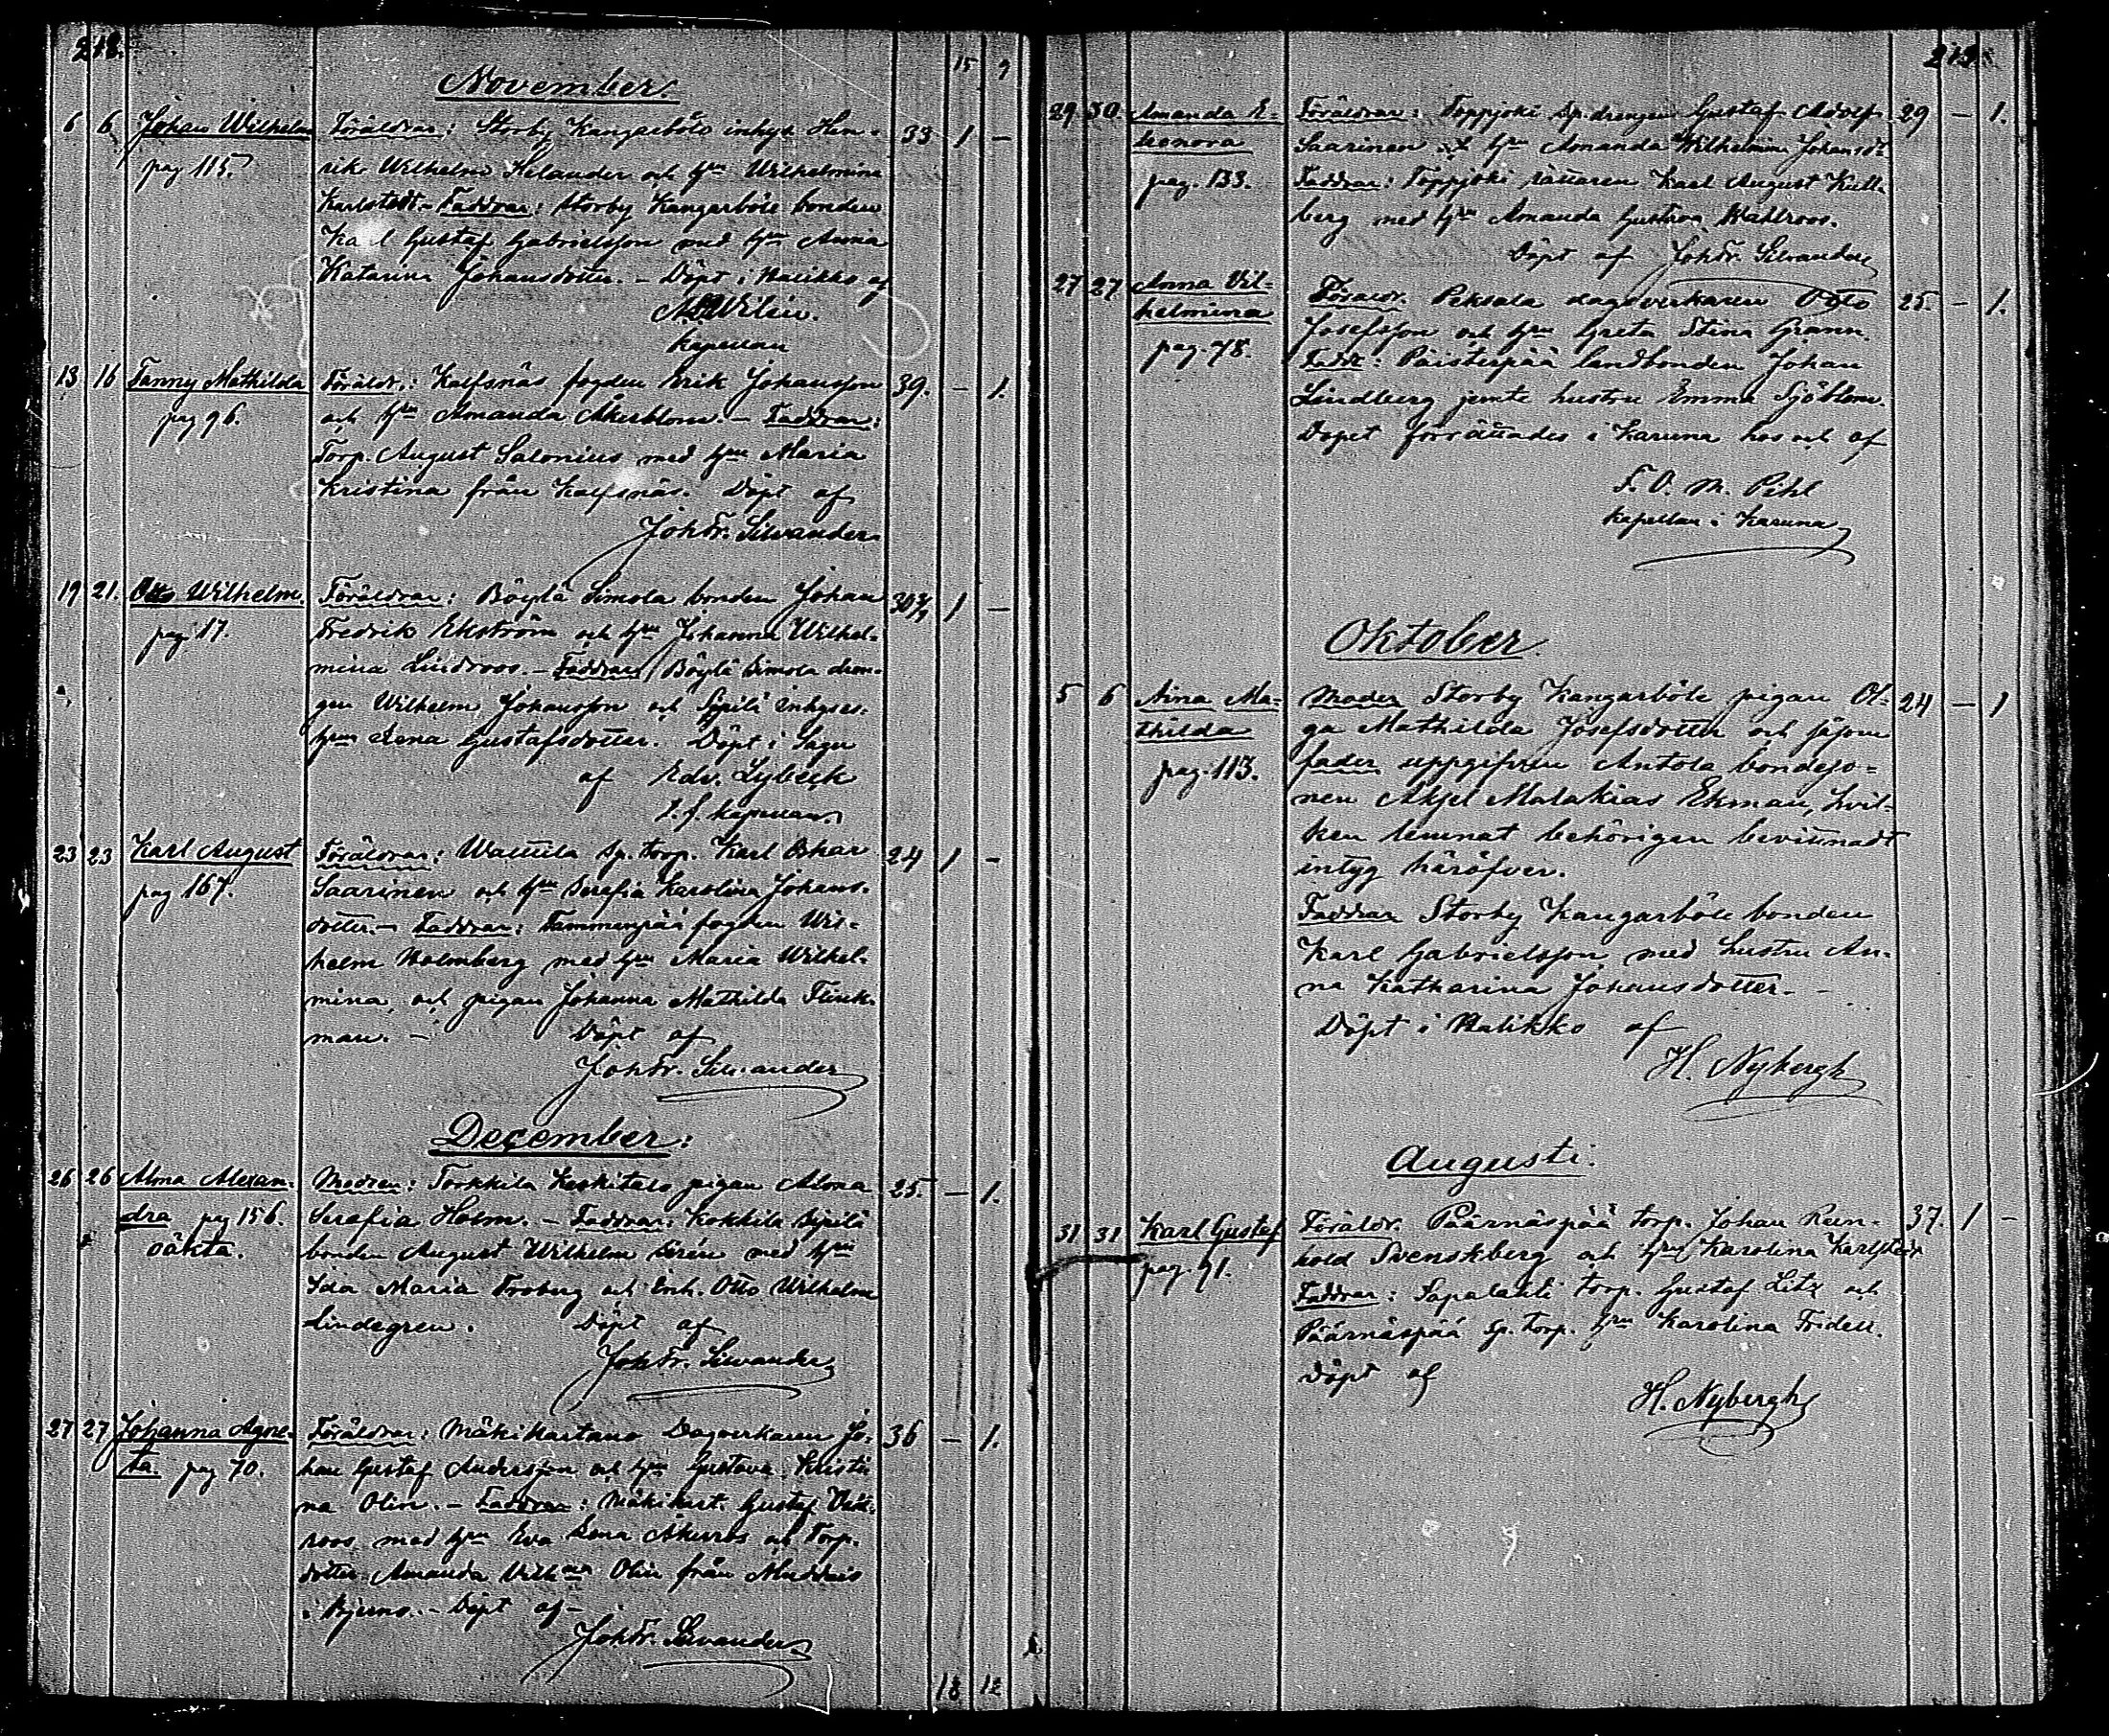 218.
15 9
November.
6 6 Johan Wilhelm Föräldrar: Storby Kangarböle inhys. Hen- 33 1 —
pag 115. rik Wilhelm Helander och hru Wilhelmina
Karlstedt – Faddrar: Storby Kangarböle bonden
Karl Gustaf Gabrielsson med hru Anna
Katarina Johansdotter. – Döpt i Halikko af
Wilén.
Kapellan
13 16 Fanny Mathilda Föräldr.: Kalfsnäs fogden Erik Johansson 39. — 1.
pag 96. och hru Amanda Åkerblom. – Faddrar:
Torp. August Salonius med hru Maria
Kristina från Kalfsnäs. Döpt af
Joh Fr. Silvander
19 21. Otto Wilhelm. Föräldrar: Böylä Simola bonden Johan 30 1 —
pag. 17. Fredrik Ekström och hru Johanna Wilhel-
mina Lindroos. – Faddrar Böylä Simola dren-
gen Wilhelm Johansson och Sipilä inhyses-
hru Lena Gustafsdotter. Döpt i Sagu
af Edv. Lybeck
t. f. kapellan
23 23 Karl August Föräldrar: Wattila sp. torp. Karl Oskar 24 1 —
pag 167. Saarinen och hru Serafia Karolina Johans-
dotter. – Faddrar: Tammenpää fogden Wil-
helm Holmberg med hru Maria Wilhel-
mina och pigan Johanna Mathilda Flink-
man. – Döpt af
Joh Fr. Silvander
December:
26 26 Alma Alexan- Modren: Torkkila Keskitalo pigan Alma 25. — 1.
dra pag 156. Serafia Holm. – Faddrar: Kokkila Sipilä
oäkta. bonden August Wilhelm Sirén med hru
Ida Maria Froberg och Inh. Otto Wilhelm
Lindegren. Döpt af
Joh Fr. Silvander
27 27 Johanna Agne- Föräldrar: Mäkikartano Dagverkaren Jo- 36 — 1.
ta pag 70. han Gustaf Andersson och hru Gustava Kristi
na Olin. – Faddrar: Mäkikart. Gustaf
roos med hru Eva Lena Åkerros och Torp.
dotter Amanda Olin från
i Bjerno. – Döpt af –
Joh Fr. Silvander
18 12
219.
29 30 Amanda E- Föräldrar: Toppjoki sp. drengen Gustaf Adolf 29 — 1.
leonora Saarinen och hru Amanda Wilhelmina Johansdt
pag. 133. Faddrar: Toppjoki rättaren Karl August Kull-
berg med hru Amanda Gustava Wahlroos.
Döpt af Joh Fr. Silvander
27 27 Anna Vil- Föräldr. Peksala dagsverkaren Otto 25. — 1.
helmina Josefsson och hru Greta Stina Grann.
pag. 78. Fadd: Päistenpää landbonden Johan
Lindberg jemte hustru Emma Sjöblom.
Dopet förrättades i Karuna hos och af
F. O. M. Pihl
Kapellan i Karuna
Oktober
5 6 Nina Ma- Moder Storby Kangarböle pigan Ol- 24 — 1
thilda ga Mathilda Josefsdotter och såsom
pag. 113. fader uppgifven Antola bondeso-
nen Aksel Malakias Ekman, hvil-
ken lemnat behörigen bevittnadt
intyg häröfver.
Faddrar Storby Kangarböle bonden
Karl Gabrielsson med hustru An-
na Katharina Johansdotter. –
Döpt i Halikko af
H. Nybergh
Augusti.
31 31 Karl Gustaf Föräldr. Päärnäspää torp. Johan Rein- 37. 1 —
pag. 91. hold Svenskberg och hru Karolina Karlsdotr
Faddrar: Sapalahti torp. Gustaf Litz och
Päärnäspää sp. torp. hru Karolina Fridell.
Döpt af
H. Nybergh